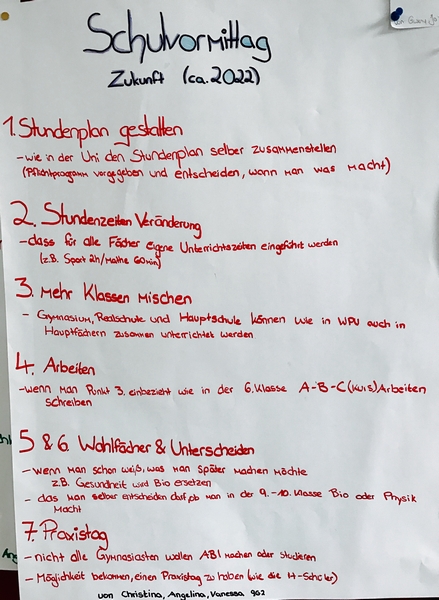 Schulvormittag
Zukunft (ca. 2022)
1. Stundenplan gestalten
- wie in der Uni den Stundenplan selber zusammenstellen
(Pflichtprogramm vorgegeben und entscheiden, wann man was macht)
2. Stundenzeiten Veränderung
- dass für alle Fächer eigene Unterrichtszeiten eingeführt werden
(z.B. Sport 2h/Mathe 60min)
3. Mehr Klassen mischen
- Gymnasium, Realschule und Hauptschule können wie in WPU auch in
Hauptfächern zusammen unterrichtet werden
4. Arbeiten
- wenn man Punkt 3. einbezieht wie in der 6. Klasse A-B-C (Kurs) Arbeiten
schreiben
5 & 6. Wahlfächer & Unterscheiden
- wenn man schon weiß, was man später machen möchte
z.B. Gesundheit wird Bio ersetzen
- das man selber entscheiden darf, ob man in der 9.-10. Klasse Bio oder Physik
macht
7. Praxistag
- nicht alle Gymnasiasten wollen ABI machen oder studieren
- Möglichkeit bekommen, einen Praxistag zu haben (wie die H-Schüler)
von Christina, Angelina, Vanessa 902